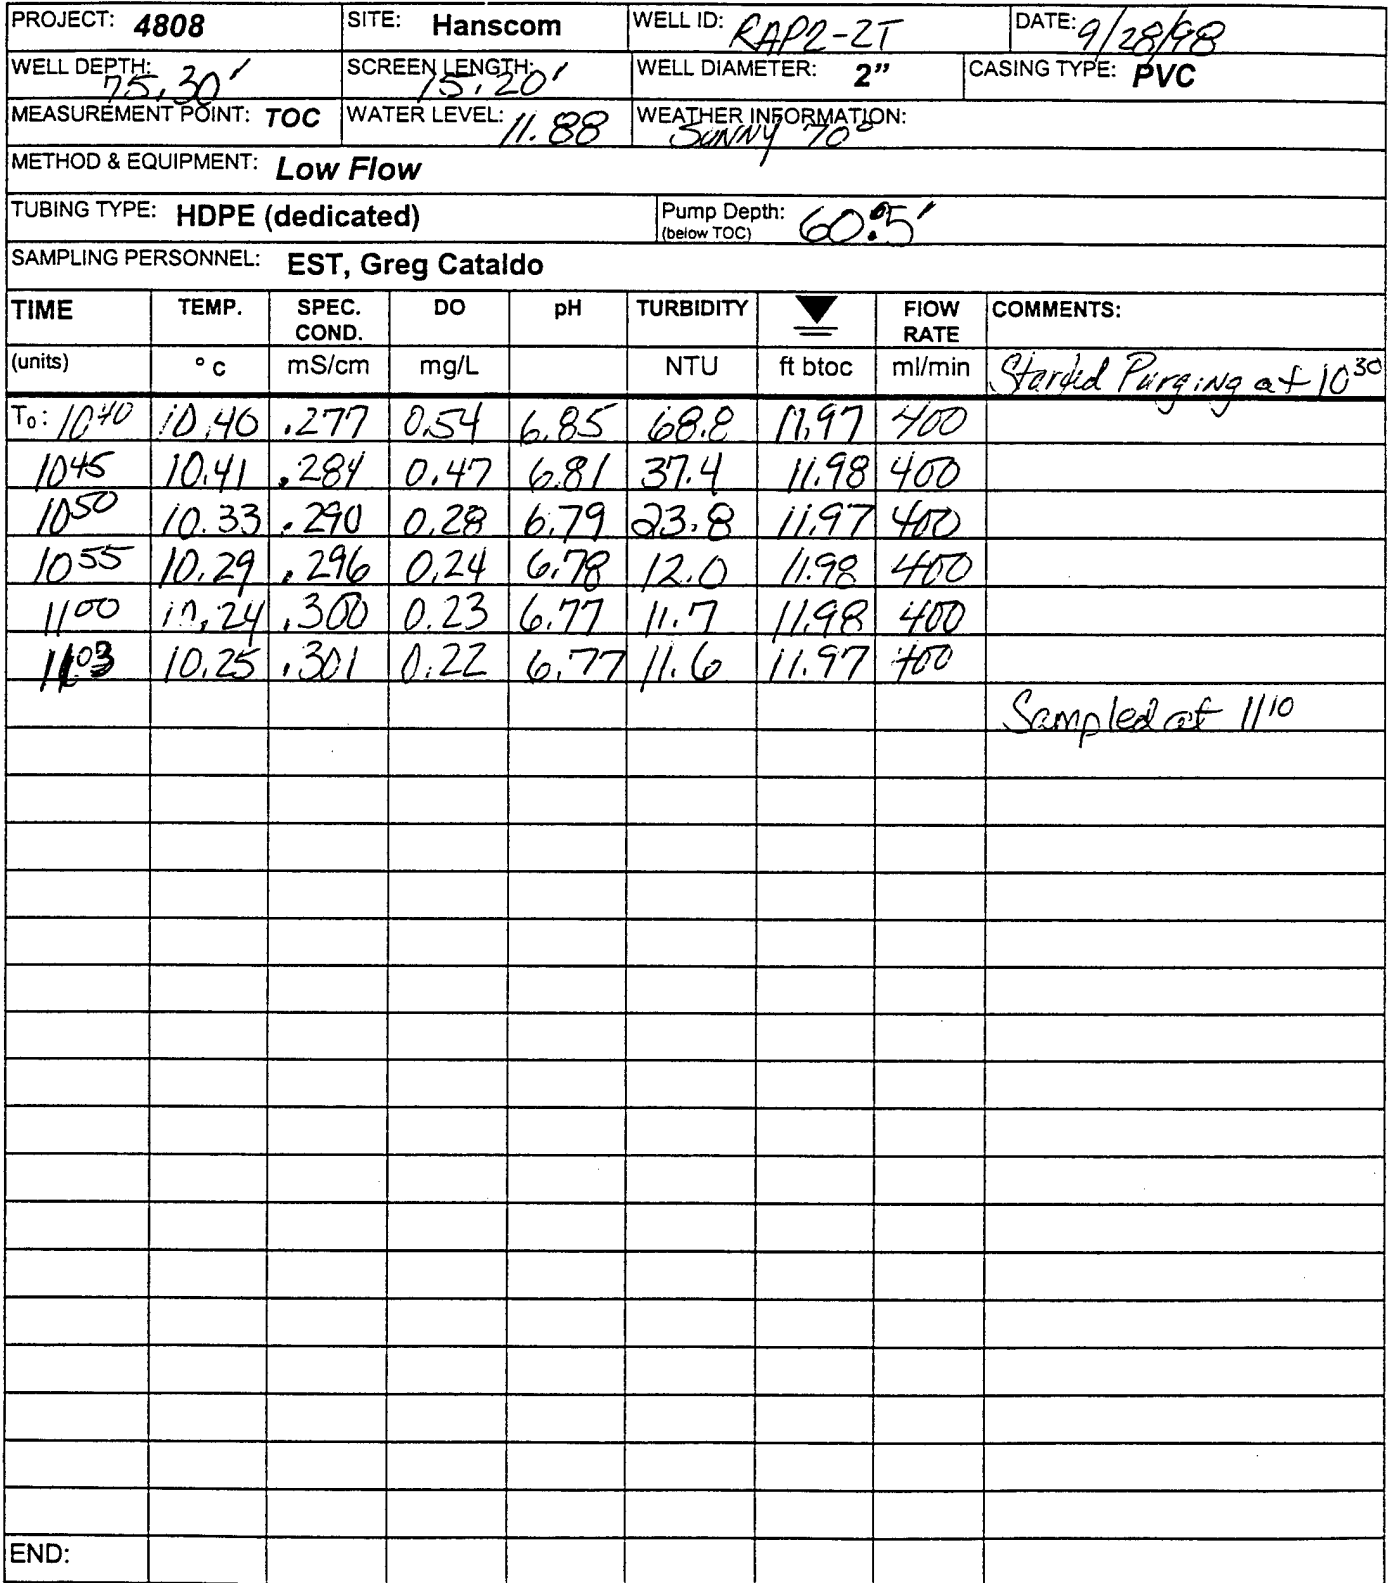 PROJECT: 4808 SITE: Hanscom WELL ID: RAP2-2T DATE: 9/28/98
WELL DEPTH: 75.30' SCREEN LENGTH: 15.20' WELL DIAMETER: 2" CASING TYPE: PVC
MEASUREMENT POINT: TOC WATER LEVEL: 11.88 WEATHER INFORMATION: SUNNY 70°
METHOD & EQUIPMENT: Low Flow
TUBING TYPE: HDPE (dedicated) Pump Depth: (below TOC) 60.5'
SAMPLING PERSONNEL: EST, Greg Cataldo
TIME TEMP. SPEC. COND. DO pH TURBIDITY FlOW RATE COMMENTS:
(units) ° c mS/cm mg/L NTU ft btoc ml/min Started Purging at 10 30
T₀: 10 40 10.40 .277 0.54 6.85 68.8 11.97 400
10 45 10.41 .284 0.47 6.81 37.4 11.98 400
10 50 10.33 .290 0.28 6.79 23.8 11.97 400
10 55 10.29 .296 0.24 6.78 12.0 11.98 400
11 00 10.24 .300 0.23 6.77 11.7 11.98 400
11 03 10.25 .301 0.22 6.77 11.6 11.97 400
Sampled at 11 10
END: